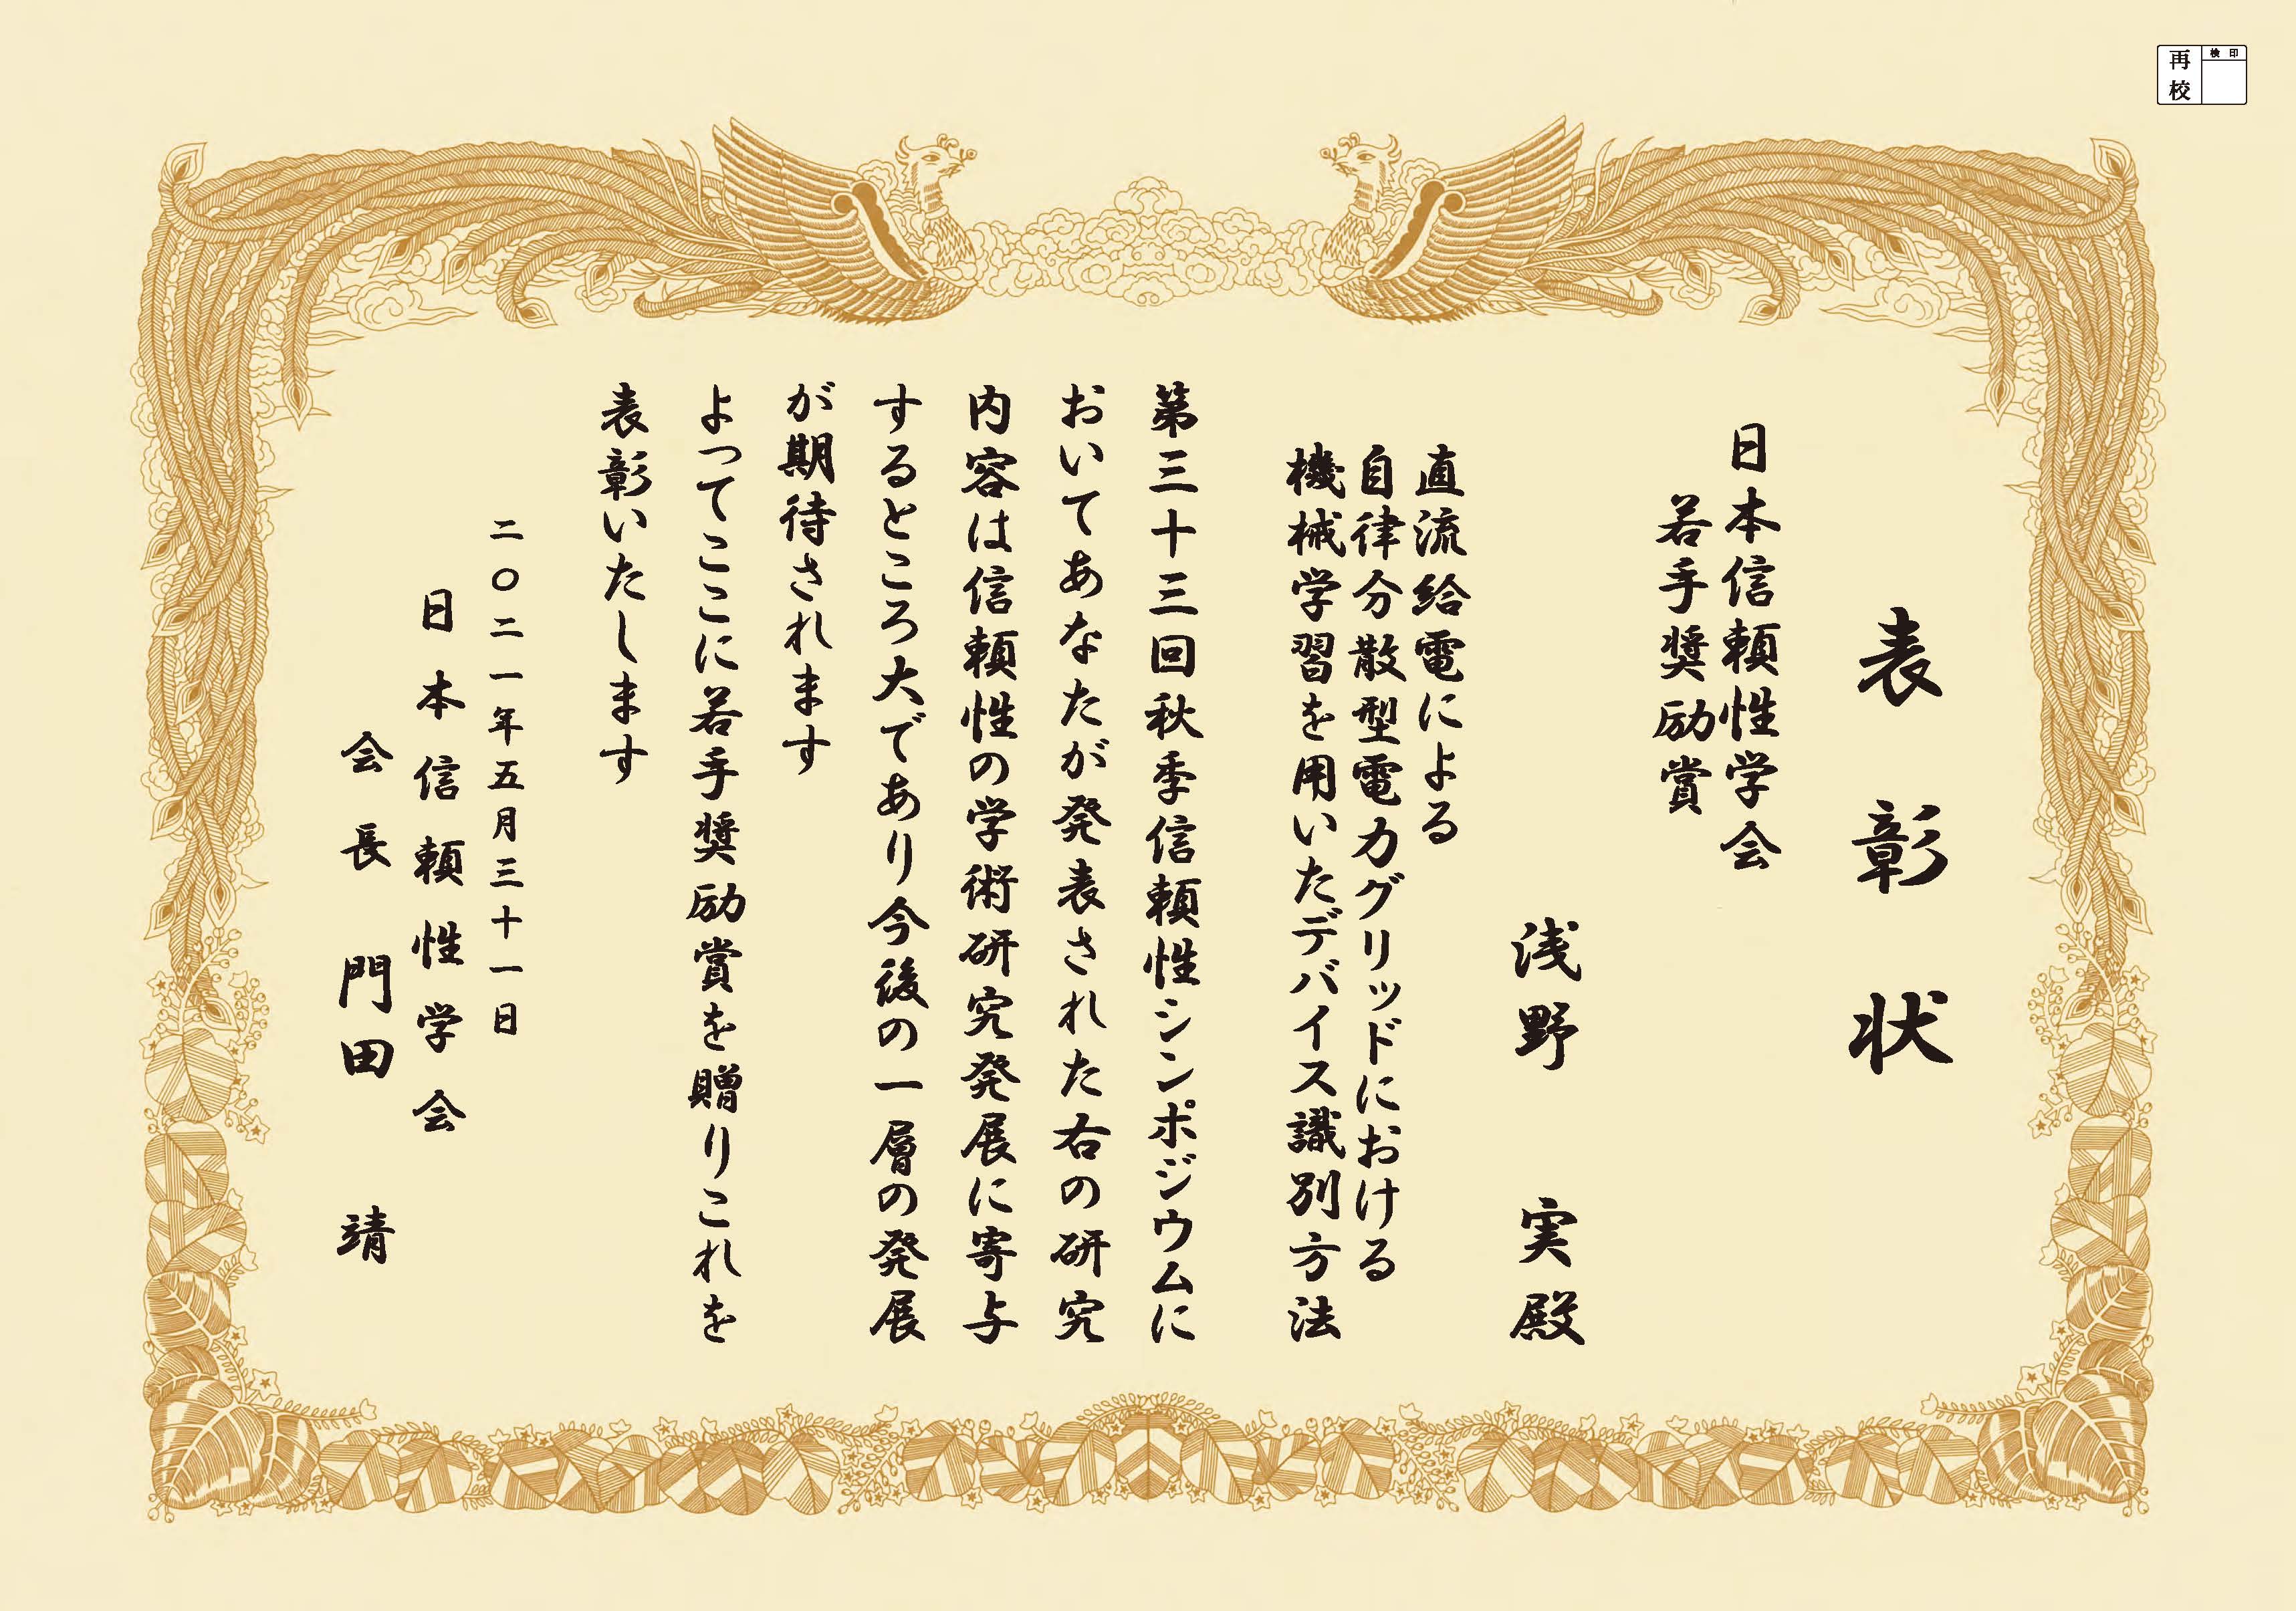 再校
検印
表彰状
日本信頼性学会
若手奨励賞
浅野 実殿
直流給電による
自律分散型電力グリッドにおける
機械学習を用いたデバイス識別方法
第三十三回秋季信頼性シンポジウムに
おいてあなたが発表された右の研究
内容は信頼性の学術研究発展に寄与
するところ大であり今後の一層の発展
が期待されます
よってここに若手奨励賞を贈りこれを
表彰いたします
二〇二一年五月三十一日
日本信頼性学会
会長 門田 靖